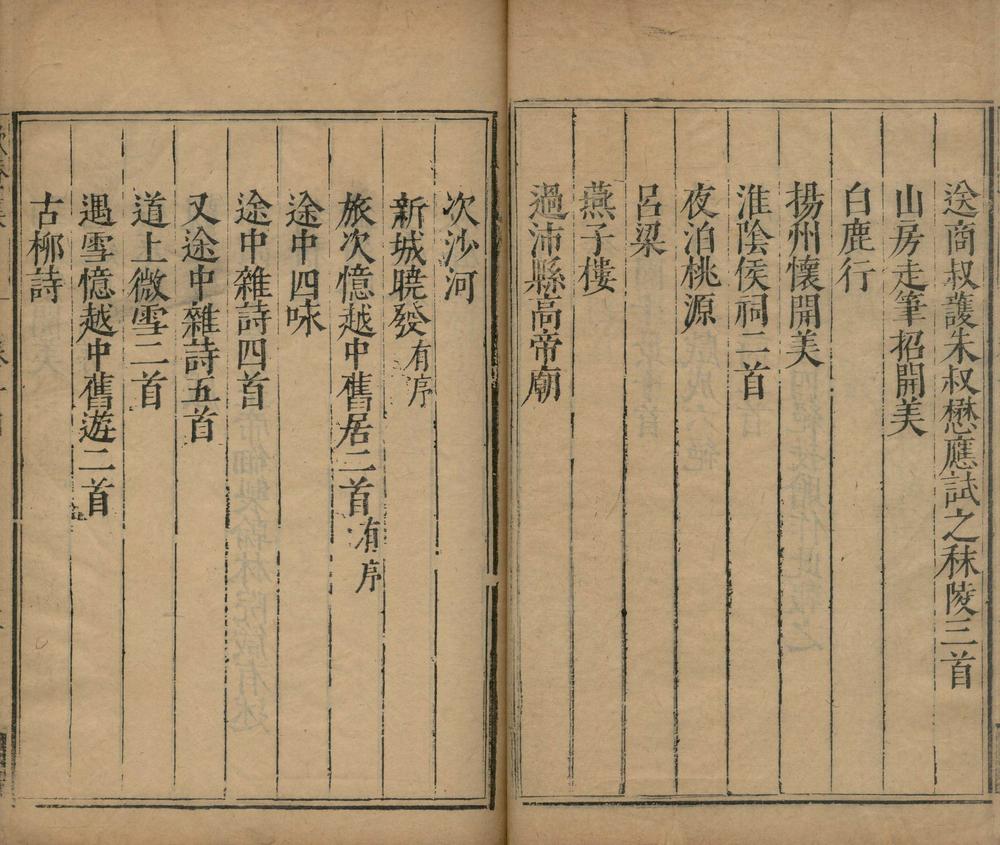 送商叔護朱叔懋應試之秣陵三首
山房走筆招開美
白鹿行
揚州懷開美
淮陰侯祠二首
夜泊桃源
呂梁
燕子樓
過沛縣高帝廟
次沙河
新城曉發有序
旅次憶越中舊居二首有序
途中四咏
途中雜詩四首
又途中雜詩五首
道上微雪二首
遇雪憶越中舊遊二首
古柳詩